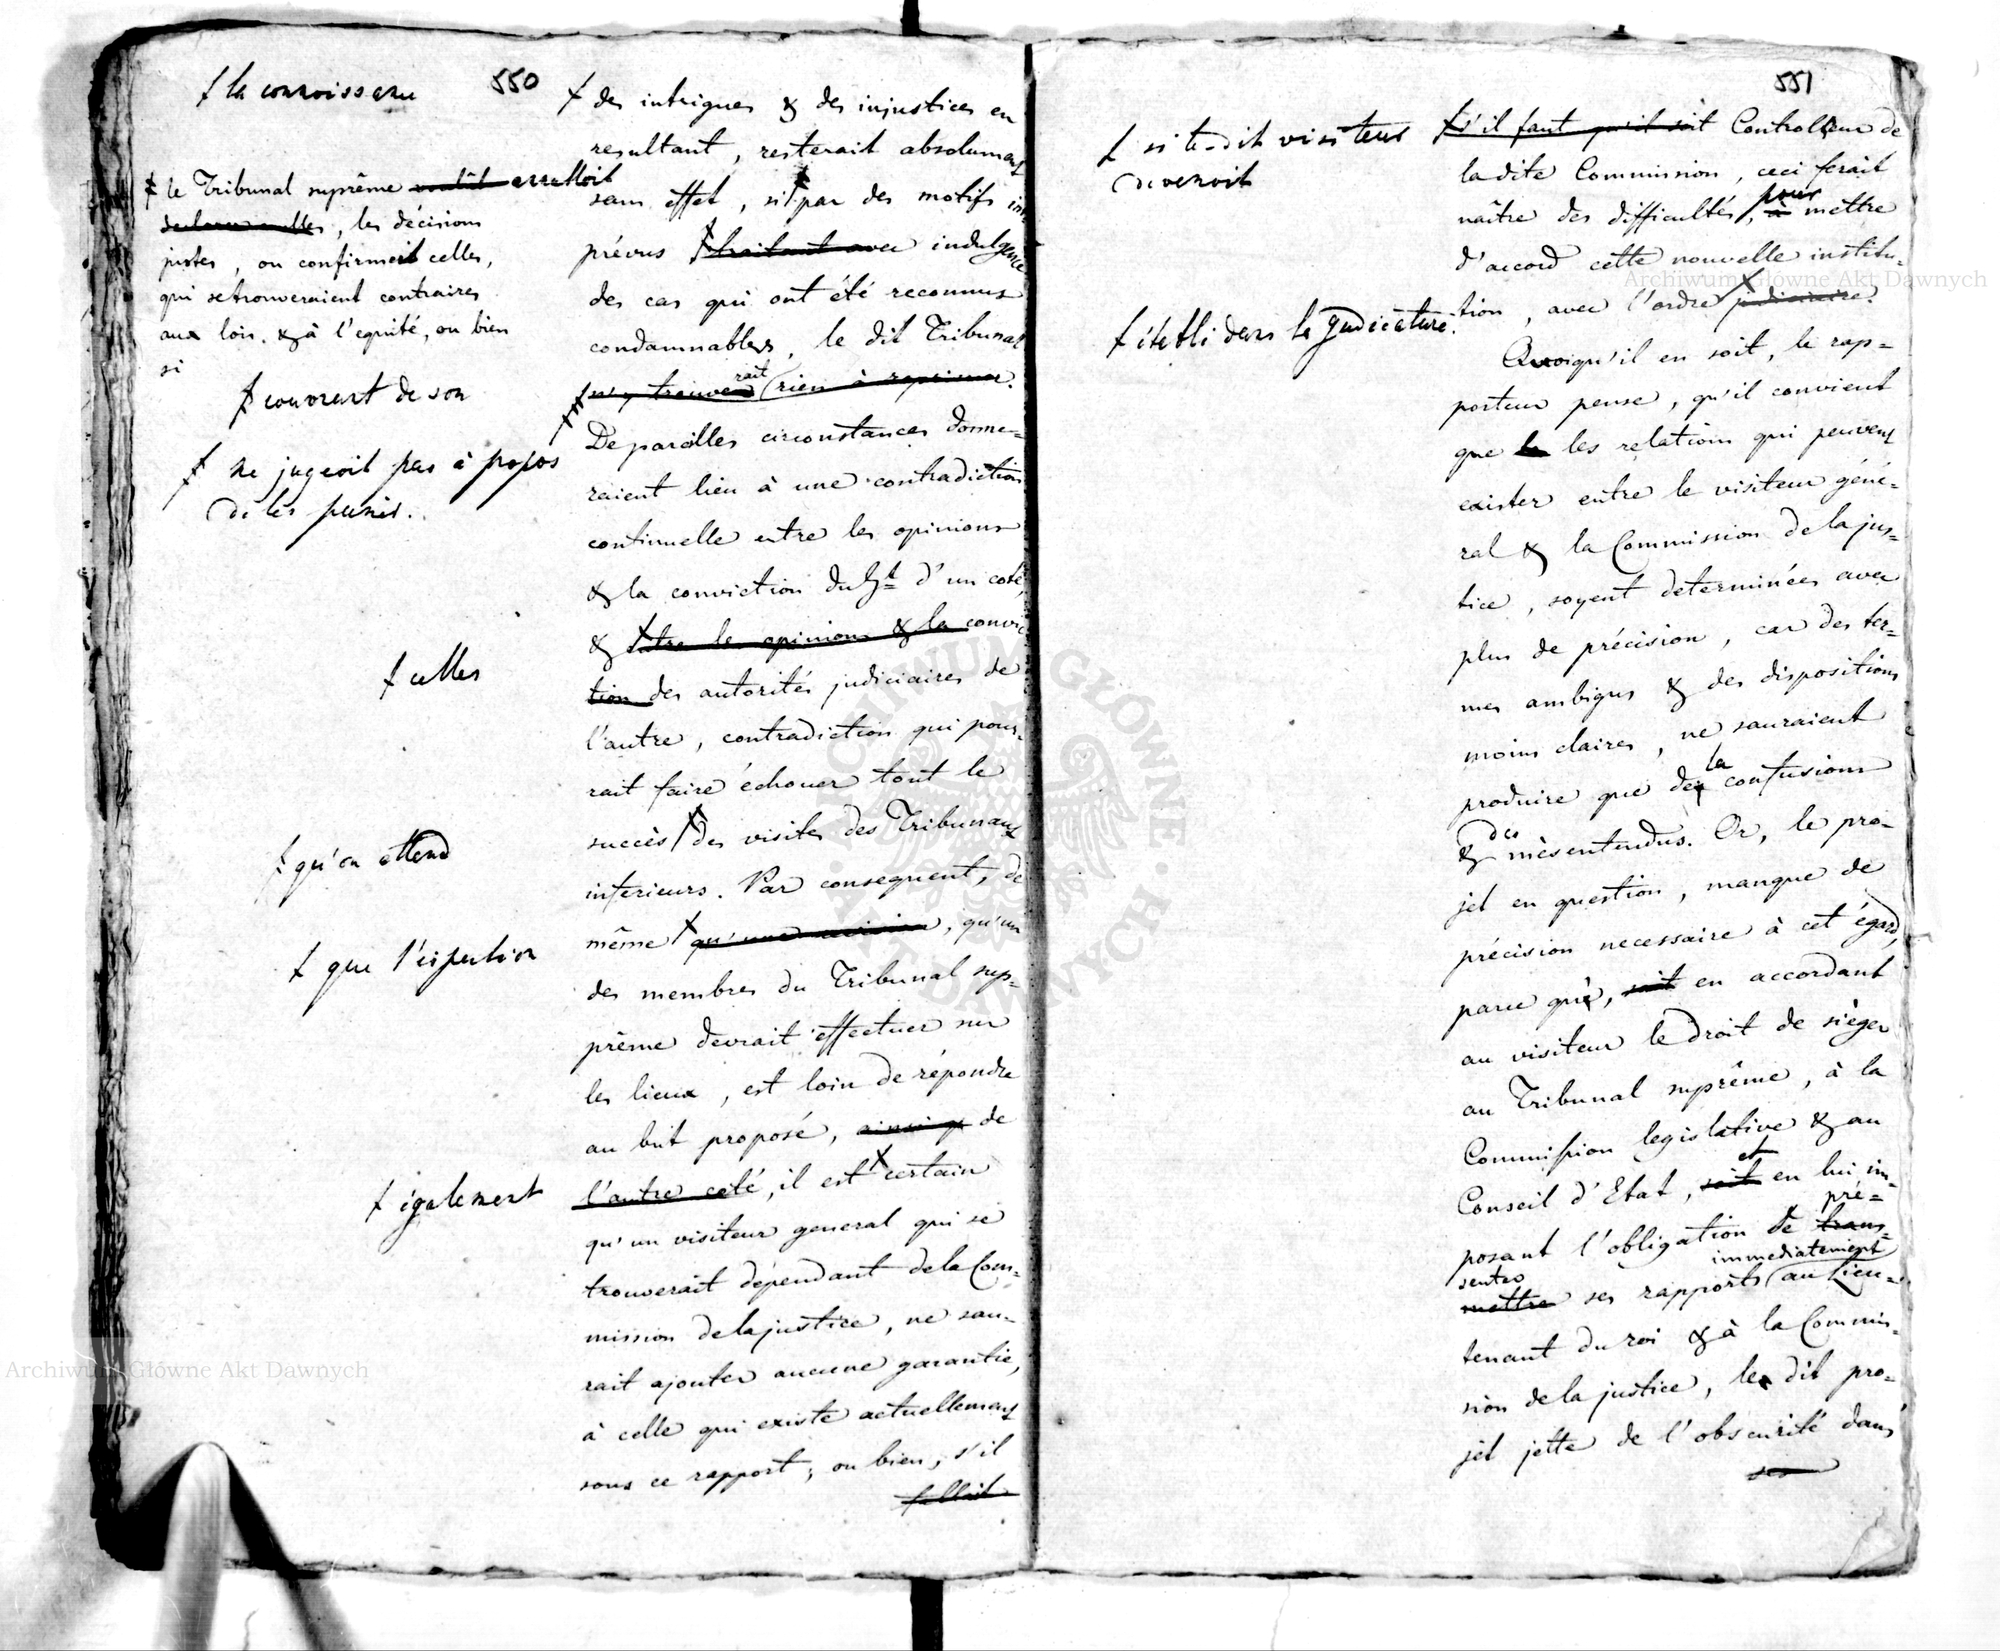 550
ƒ la connoissance
ƒ le Tribunal suprême voulût annulloit
declarer nulles, les décisions
justes, ou confirmoit celles,
qui se trouveraient contraires
aux lois, & à l'equité, ou bien
si
ƒ couvrant de son
ƒ ne jugeoit pas à propos
de les punir.
ƒ celles
ƒ qu'on attend
ƒ que l'inspection
ƒ également
ƒ des intrigues & des injustices en
resultant, resterait absolument
sans effet, si ƒ par des motifs im-
prévus ƒ traitant avec indulgence
des cas qui ont été reconnus
condamnables, le dit Tribunal
n'y trouverait rien à reprimer.
De pareilles circonstances donne=
raient lieu à une contradiction
continuelle entre les opinions
& la conviction du Gt d'un coté,
& ƒ entre les opinions & la convic
tion des autorités judiciaires de
l'autre, contradiction qui pour-
rait faire échouer tout le
succès ƒ des visites des Tribunaux
inferieurs. Par consequent, de
même ƒ qu'une revision, qu'un
des membres du Tribunal sup=
prême devrait effectuer sur
les lieux, est loin de répondre
au but proposé, ainsi que de
l'autre coté, il est ƒ certain
qu'un visiteur general qui se
trouverait dépendant de la Com=
mission de la justice, ne sau-
rait ajouter aucune garantie,
à celle qui existe actuellement
sous ce rapport; ou bien, s'il
fallait
551
ƒ si le dit visiteur
devenoit
ƒ établi dans la judicature.
ƒ s'il faut qu'il soit Controlleur de
la dite Commission, ceci ferait
naître des difficultés, à pour mettre
d'accord cette nouvelle institu-
tion, avec l'ordre ƒ judiciaire.
Quoiqu'il en soit, le rap=
porteur pense, qu'il convient
que les relations qui peuvent
exister entre le visiteur géné-
ral & la Commission de la jus=
tice, soyent determinées avec
plus de précision, car des ter-
mes ambigus & des dispositions
moins claires, ne sauraient
produire que de la confusions
& des mésentendus. Or, le pro-
jet en question, manque de
précision necessaire à cet égard,
parce que, soit en accordant
au visiteur le droit de siéger
au Tribunal suprême, à la
Commission legislative & au
Conseil d'Etat, soit et en lui im-
posant l'obligation de trans- pré=
mettre senter ses rapports immediatement au Lieu-
tenant du roi & à la Commis-
sion de la justice, le dit pro-
jet jette de l'obscurité dans
ses